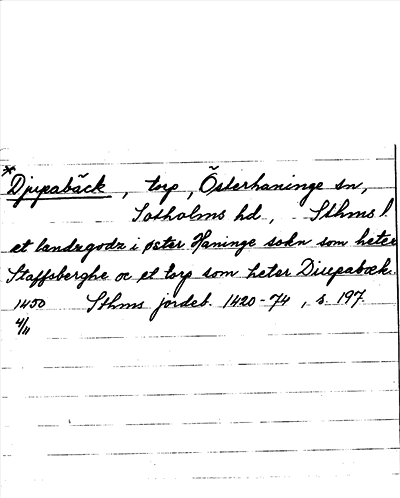 * Djupabäck, torp, Österhaninge sn,
Sotholms hd, Sthms l.
et landzgodz i øster Haninge sokn som heter
Staffsberghe oc et torp som heter Diupabæk.
1450 Sthms jordeb. 1420-74, s. 197.
4/11